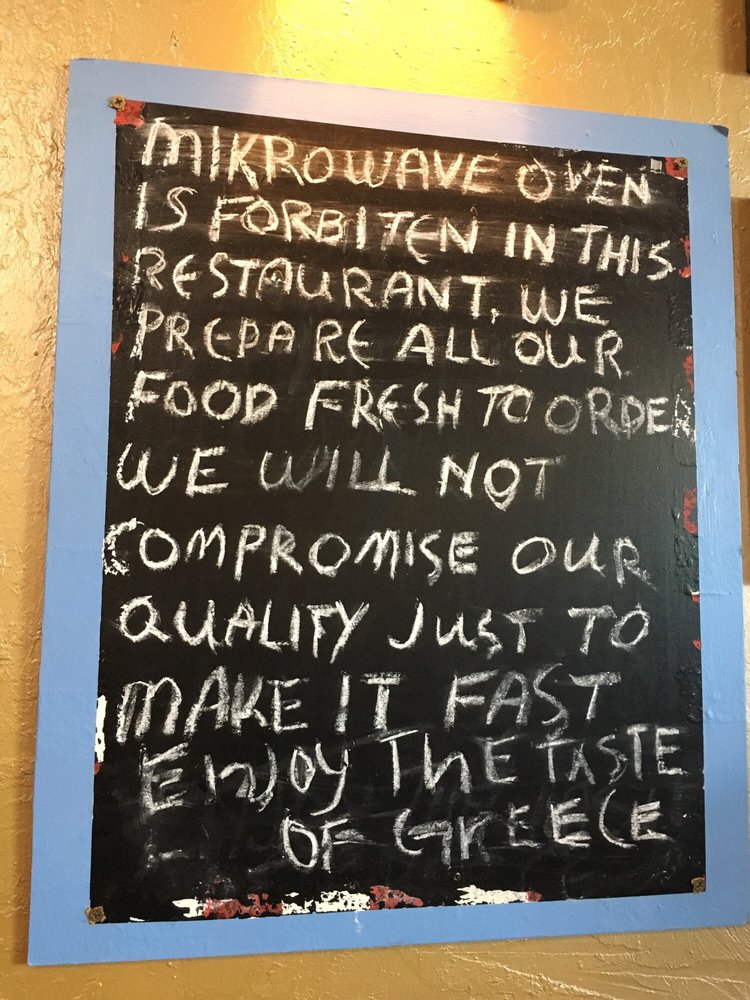 MIKROWAVE OVEN
IS FORBITEN IN THIS
RESTAURANT, WE
PREPARE ALL OUR
FOOD FRESH TO ORDER
WE WILL NOT
COMPROMISE OUR
QUALITY JUST TO
MAKE IT FAST
ENJOY THE TASTE
OF GREECE